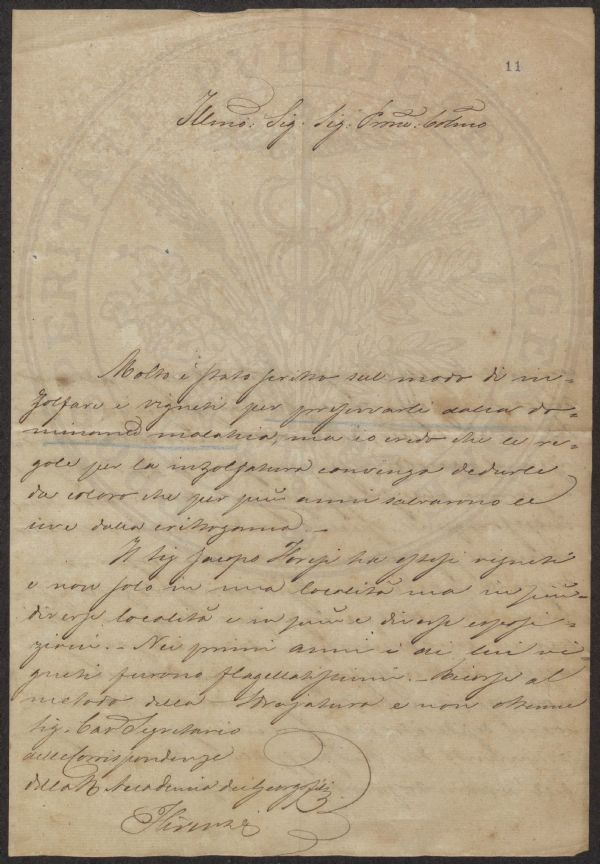 11
Illmo. Sig. Sig. Prone. Colmo
Molto è stato scritto sul modo di in=
zolfare i vigneti per preservarli dalla do=
minante malattia, ma io credo che le re=
gole per la inzolfatura convenga dedurle
da coloro che per più anni salvarono le
uve dalla crittogama. —
Il Sig Jacopo Foresi ha estesi vigneti
e non solo in una località ma in più
diverse località e in più e diverse esposi=
zioni. — Nei primi anni i di lui vi=
gneti furono flagellatissimi. — Ricorse al
metodo della e non ottenne
Sig. Cav. Segretario
delle Corrispondenze
della R. Accademia dei Georgofili
Firenze
PUBLICAE
AUGE
ERITAT